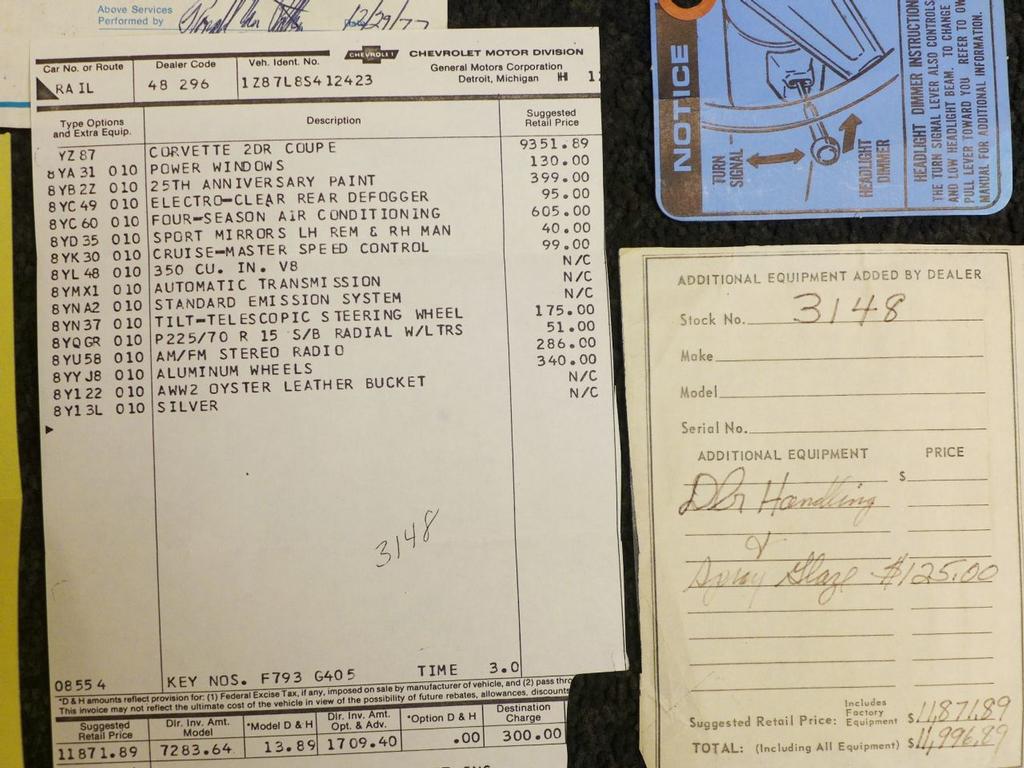 Above Services
Performed by
12/29/77
CHEVROLET
CHEVROLET MOTOR DIVISION
General Motors Corporation
Detroit, Michigan H 1
Car No. or Route
RAIL
Dealer Code
48 296
Veh. Ident. No.
1Z87L8S412423
Type Options and Extra Equip. Description Suggested Retail Price
YZ 87 CORVETTE 2DR COUPE 9351.89
8YA 31 010 POWER WINDOWS 130.00
8YB 2Z 010 25TH ANNIVERSARY PAINT 399.00
8YC 49 010 ELECTRO-CLEAR REAR DEFOGGER 95.00
8YC 60 010 FOUR-SEASON AIR CONDITIONING 605.00
8YD 35 010 SPORT MIRRORS LH REM & RH MAN 40.00
8YK 30 010 CRUISE-MASTER SPEED CONTROL 99.00
8YL 48 010 350 CU. IN. V8 N/C
8YMX1 010 AUTOMATIC TRANSMISSION N/C
8YN A2 010 STANDARD EMISSION SYSTEM N/C
8YN 37 010 TILT-TELESCOPIC STEERING WHEEL 175.00
8YQGR 010 P225/70 R 15 S/B RADIAL W/LTRS 51.00
8YU58 010 AM/FM STEREO RADIO 286.00
8YY J8 010 ALUMINUM WHEELS 340.00
8Y1 22 010 AWW2 OYSTER LEATHER BUCKET N/C
8Y1 3L 010 SILVER N/C
3148
08554 KEY NOS. F793 G405 TIME 3.0
*D & H amounts reflect provision for: (1) Federal Excise Tax, if any, imposed on sale by manufacturer of vehicle, and (2) pass thro
This invoice may not reflect the ultimate cost of the vehicle in view of the possibility of future rebates, allowances, discounts
Suggested Retail Price Dlr. Inv. Amt. Model *Model D & H Dlr. Inv. Amt. Opt. & Adv. *Option D & H Destination Charge
11871.89 7283.64 13.89 1709.40 .00 300.00
NOTICE
TURN
SIGNAL
HEADLIGHT
DIMMER
HEADLIGHT DIMMER INSTRUCTION
THE TURN SIGNAL LEVER ALSO CONTROLS
AND LOW HEADLIGHT BEAM. TO CHANGE
PULL LEVER TOWARD YOU. REFER TO OW
MANUAL FOR ADDITIONAL INFORMATION.
ADDITIONAL EQUIPMENT ADDED BY DEALER
Stock No. 3148
Make
Model
Serial No.
ADDITIONAL EQUIPMENT PRICE
Dlr Handling $
&
Glaze $125.00
Suggested Retail Price: Includes Factory Equipment $ 11,871.89
TOTAL: (Including All Equipment) $ 11,996.89